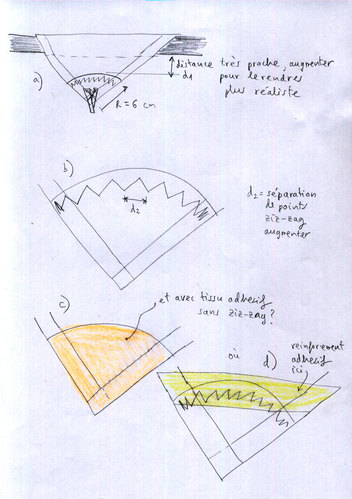 distance très proche, augmenter
d1 pour le rendres
plus réaliste
a)
R = 6 cm
b)
d2
d2 = séparation
de points
ziz-zag
augmenter
c)
et avec tissu adhesif
sans ziz-zag?
où
d)
reinforcement
adhesif
ici